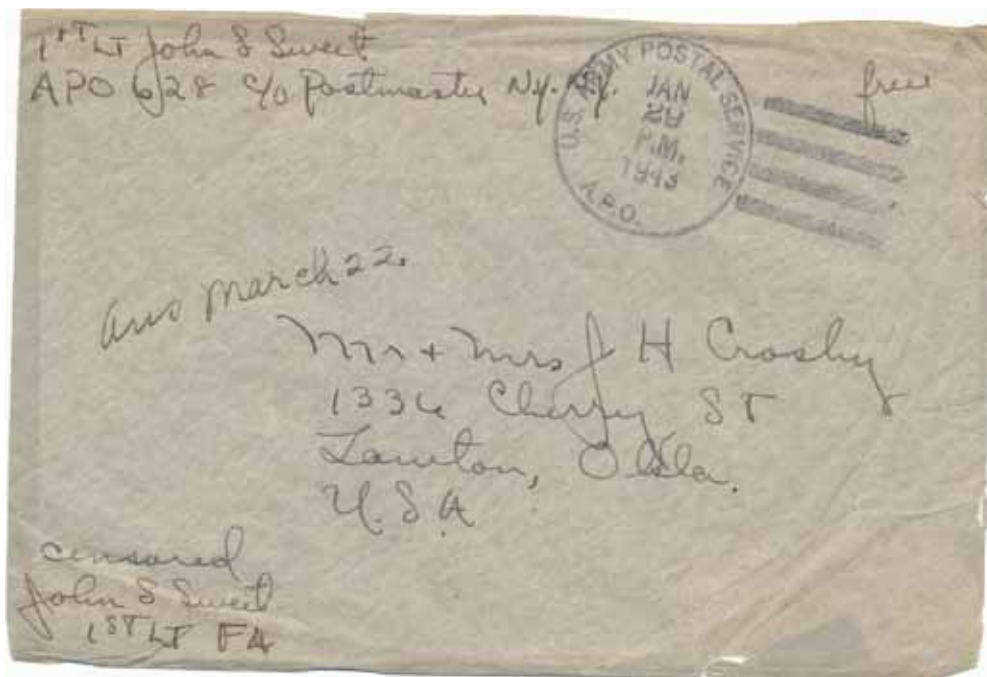 1ST LT John S Sweet
APO 628 c/o Postmaster N.Y. N.Y.
free
U.S. ARMY POSTAL SERVICE
JAN
P.M.
1943
A.P.O.
ans March 22.
Mr + Mrs J H Crosby
1336 Cherry ST
Lawton, Okla.
U.S.A
censored
John S Sweet
1ST LT FA